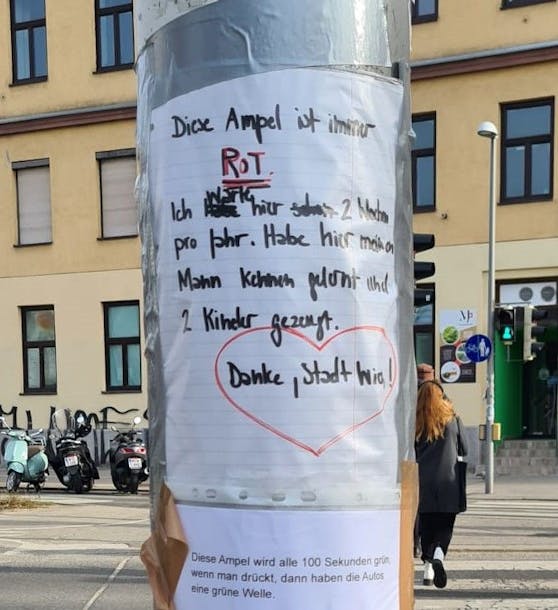 Diese Ampel ist immer
ROT.
Ich warte hier 2 Wochen
pro Jahr. Habe hier meinen
Mann kennen gelernt und
2 Kinder gezeugt.
Danke, Stadt Wien!
Diese Ampel wird alle 100 Sekunden grün,
wenn man drückt, dann haben die Autos
eine grüne Welle.